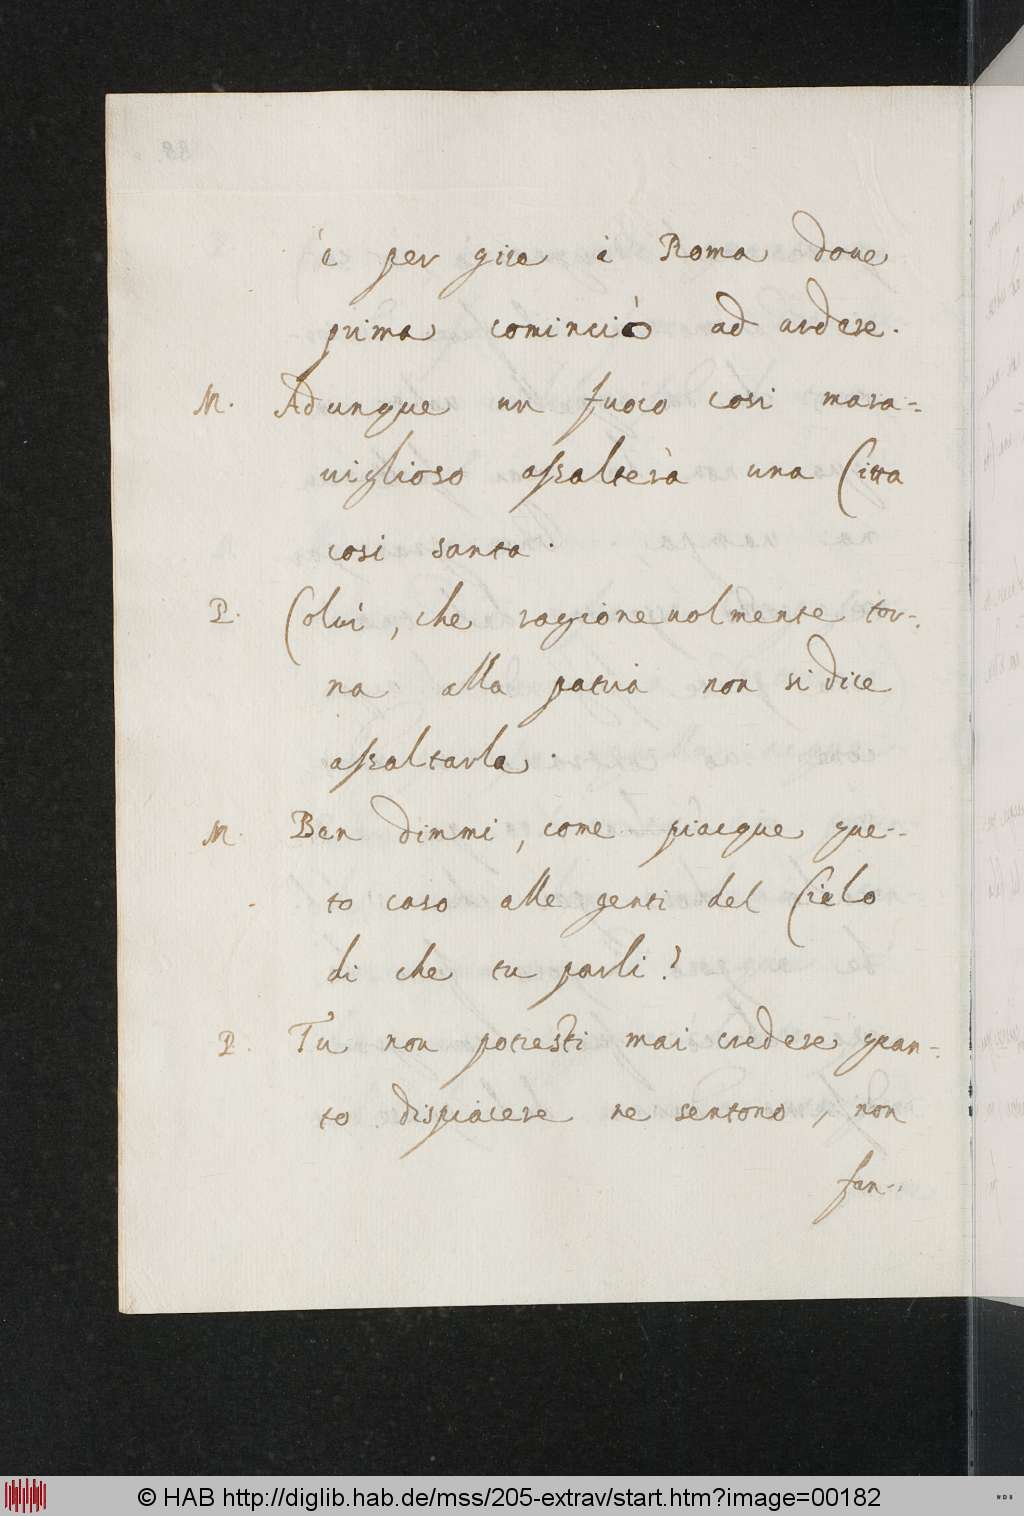 è per gire à Roma doue
prima cominciò ad ardere.
M. Adunque un fuoco cosi mara-
uiglioso assalterà una Citta
cosi santa.
P. Colui, che ragioneuolmente tor-
na alla patria non si dice
assaltarla.
M. Ben dimmi, come piacque que-
to caso alle genti del Cielo
di che tu parli?
P. Tu non potresti mai credere quan-
to dispiacere ne sentono, non
fan-
© HAB http://diglib.hab.de/mss/205-extrav/start.htm?image=00182